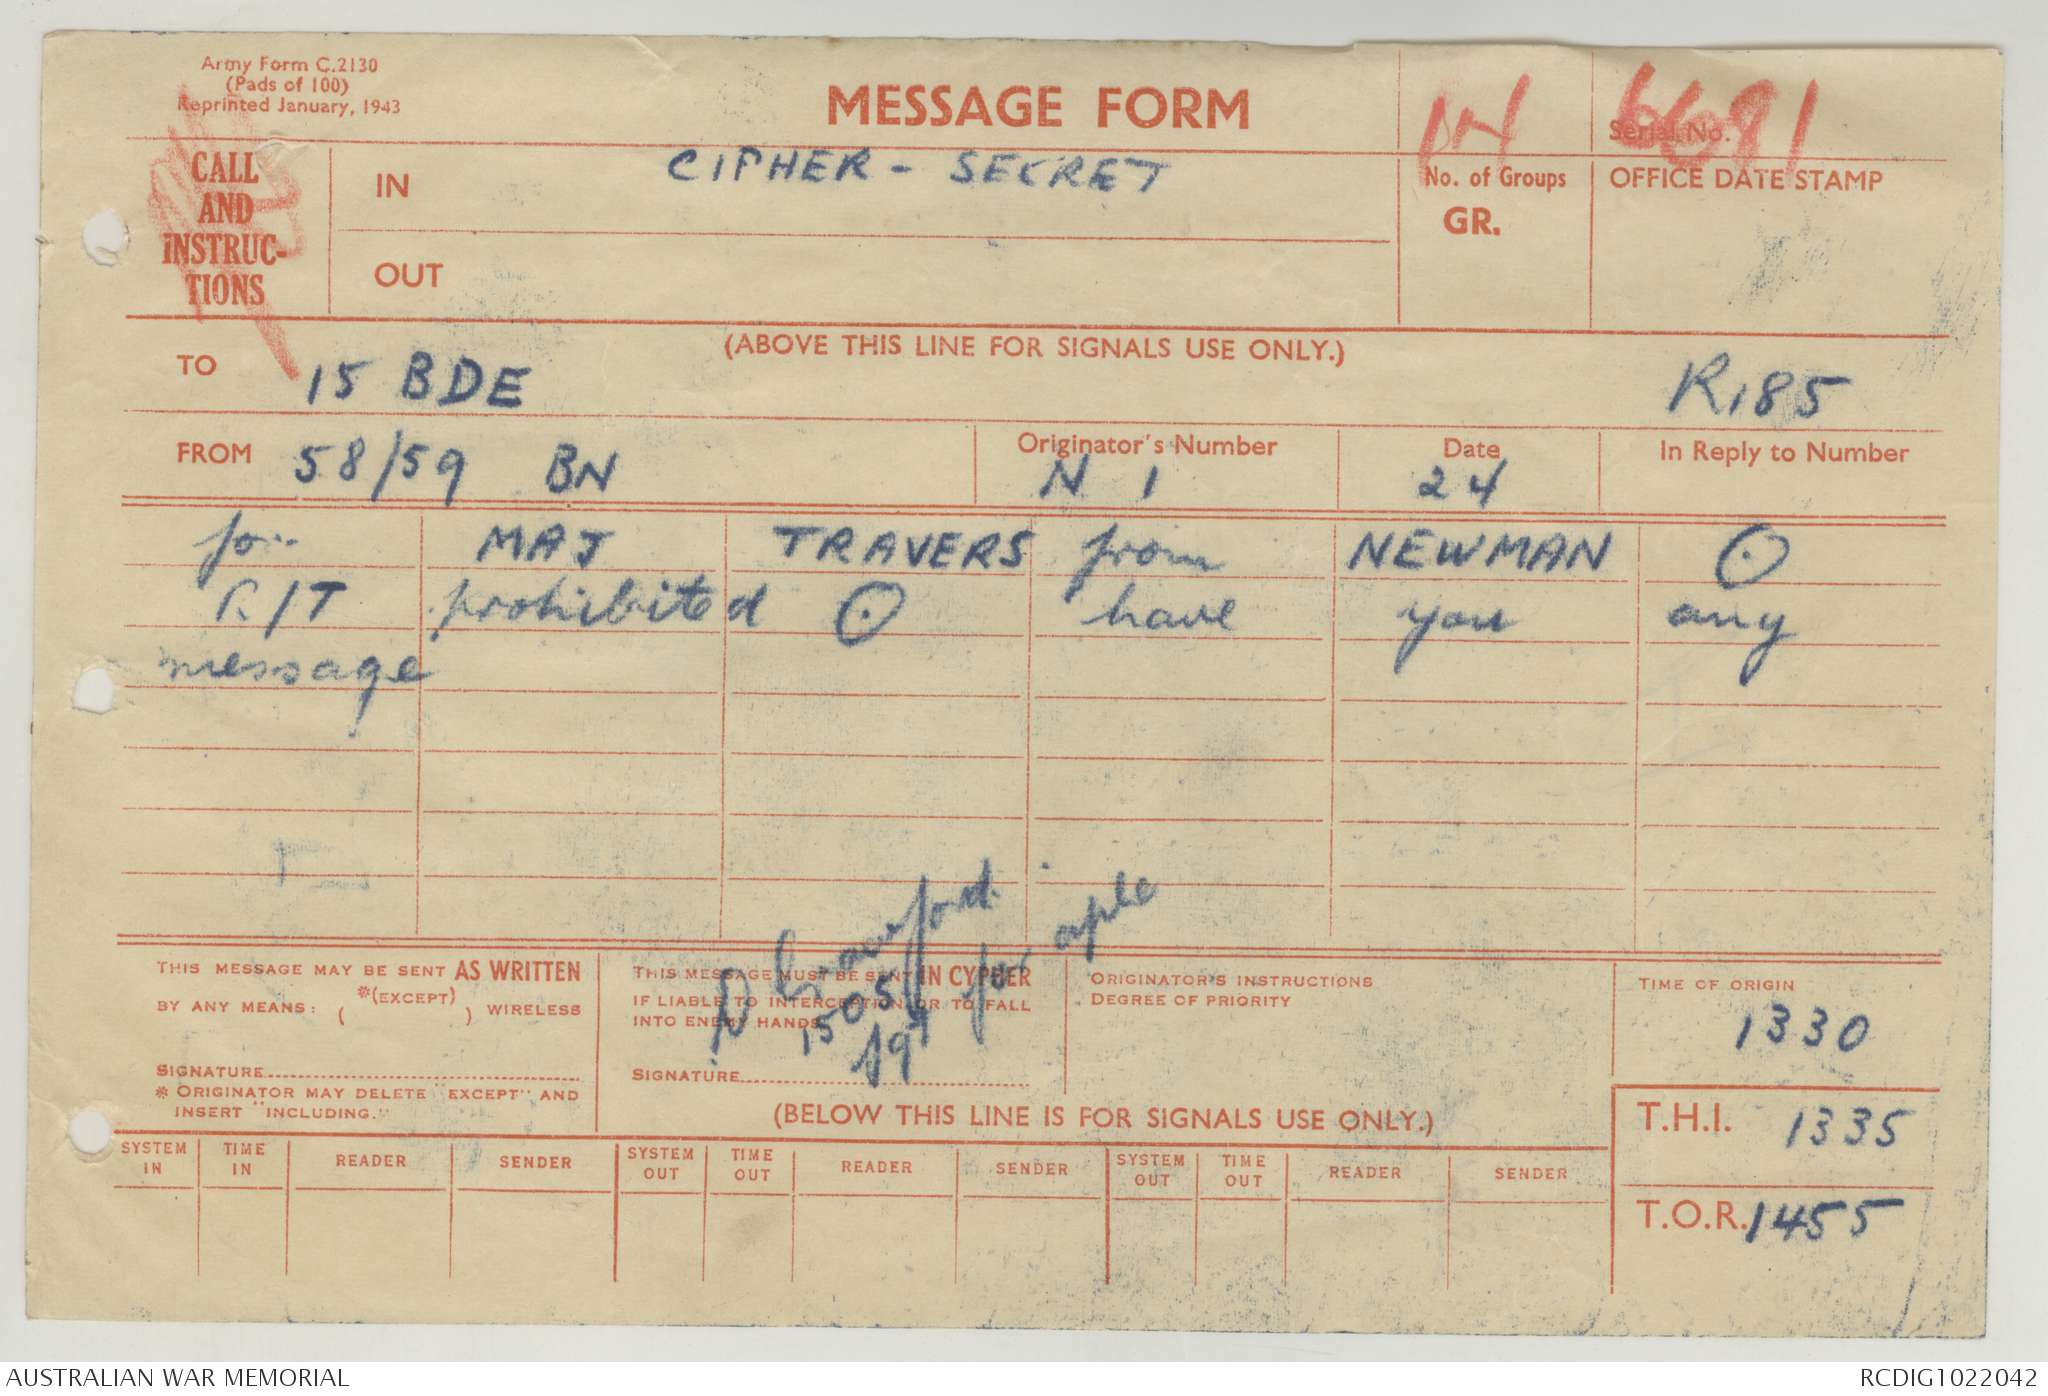 Army Form C.2130
(Pads of 100)
Reprinted January, 1943
MESSAGE FORM
IN 6681
Serial No.
CALL AND INSTRUC-TIONS
IN CIPHER - SECRET
OUT
No. of Groups
GR.
OFFICE DATE STAMP
(ABOVE THIS LINE FOR SIGNALS USE ONLY.)
TO 15 BDE R185
FROM 58/59 BN
Originator's Number N 1
Date 24
In Reply to Number
for MAJ TRAVERS from NEWMAN ⊙
R/T prohibited ⊙ have you any
message
THIS MESSAGE MAY BE SENT AS WRITTEN
BY ANY MEANS: *(EXCEPT) ( ) WIRELESS
SIGNATURE
* ORIGINATOR MAY DELETE "EXCEPT" AND
INSERT "INCLUDING."
THIS MESSAGE MUST BE SENT IN CYPHER
IF LIABLE TO INTERCEPTION OR TO FALL
INTO ENEMY HANDS
SIGNATURE
Crawford
1505
for
ORIGINATOR'S INSTRUCTIONS
DEGREE OF PRIORITY
TIME OF ORIGIN
1330
(BELOW THIS LINE IS FOR SIGNALS USE ONLY.)
T.H.I. 1335
SYSTEM IN TIME IN READER SENDER SYSTEM OUT TIME OUT READER SENDER SYSTEM OUT TIME OUT READER SENDER
T.O.R. 1455
AUSTRALIAN WAR MEMORIAL RCDIG1022042